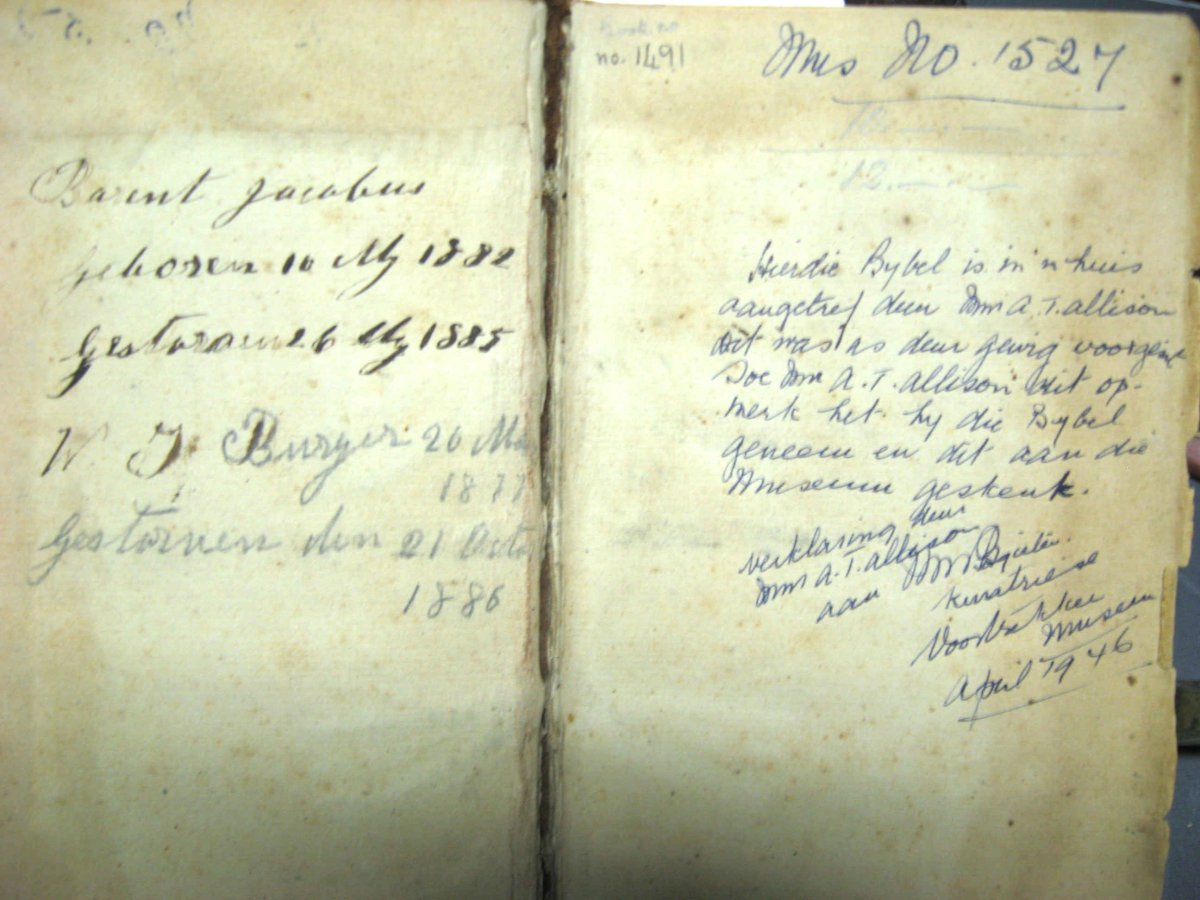 Barent Jacobus
Geboren 10 My 1882
Gestorven 26 My 1885
W J Burger 20
1877
Gestorven den 21 Octo
1886
Book no
no. 1491
Mus No. 1527
12. — . —
Hierdie Bybel is in 'n huis
aangetref deur Dnr A. T. Allison
dit was as deur
Toe Dnr A. T. Allison dit op-
merk het hy die Bybel
geneem en dit aan die
Museum geskenk.
verklaring deur
Dnr A. T. Allison
aan
kuratriese
Voortrekker
Museum
April 1946